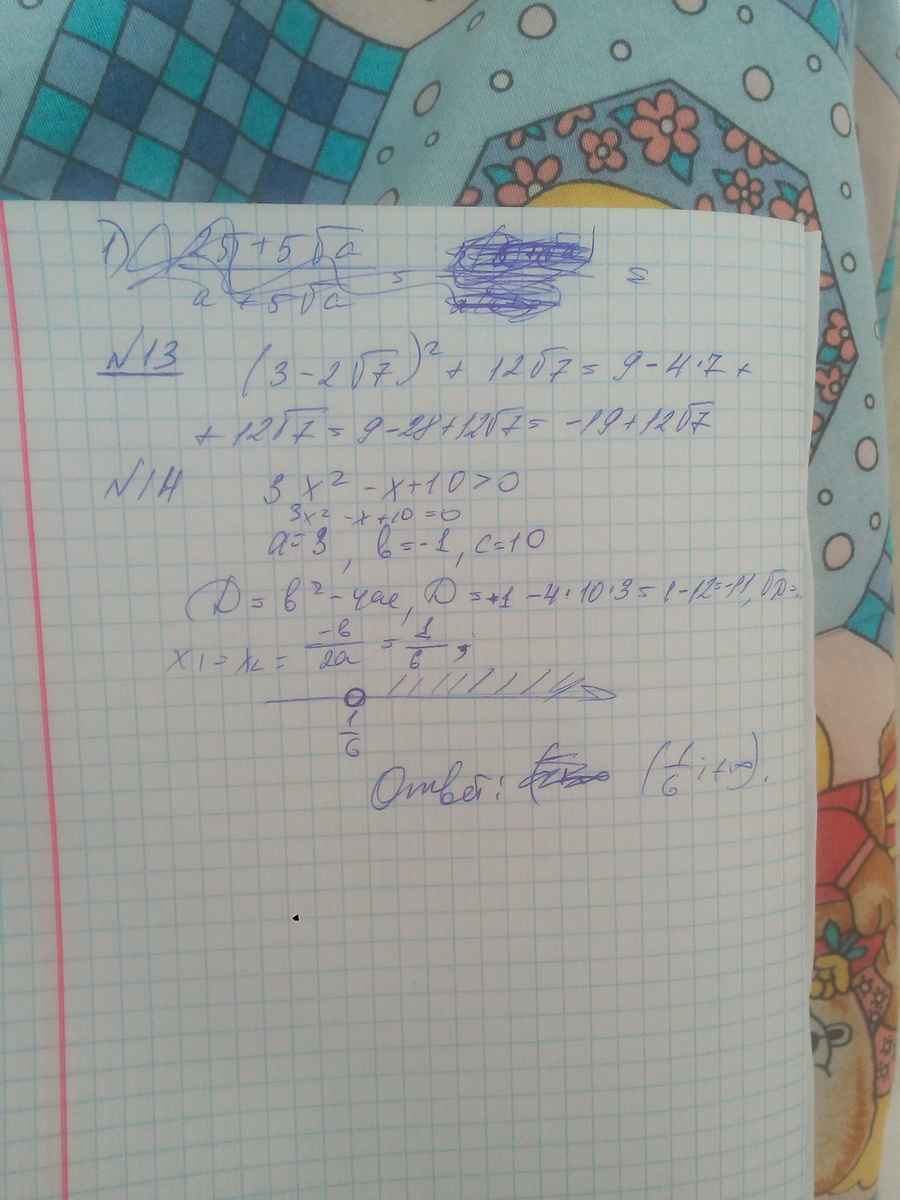 1) 2√ + 5√a / a + 5√a = =
№13 (3 - 2√7)² + 12√7 = 9 - 4·7 +
+ 12√7 = 9 - 28 + 12√7 = -19 + 12√7
№14 3x² - x + 10 > 0
3x² - x + 10 = 0
a = 3, в = -1, c = 10
D = в² - 4ac, D = +1 - 4·10·3 = 1 - 12 = -11, √D =
x1 = x2 = -в/2a = 1/6;
1/6
Ответ: (1/6; +∞).